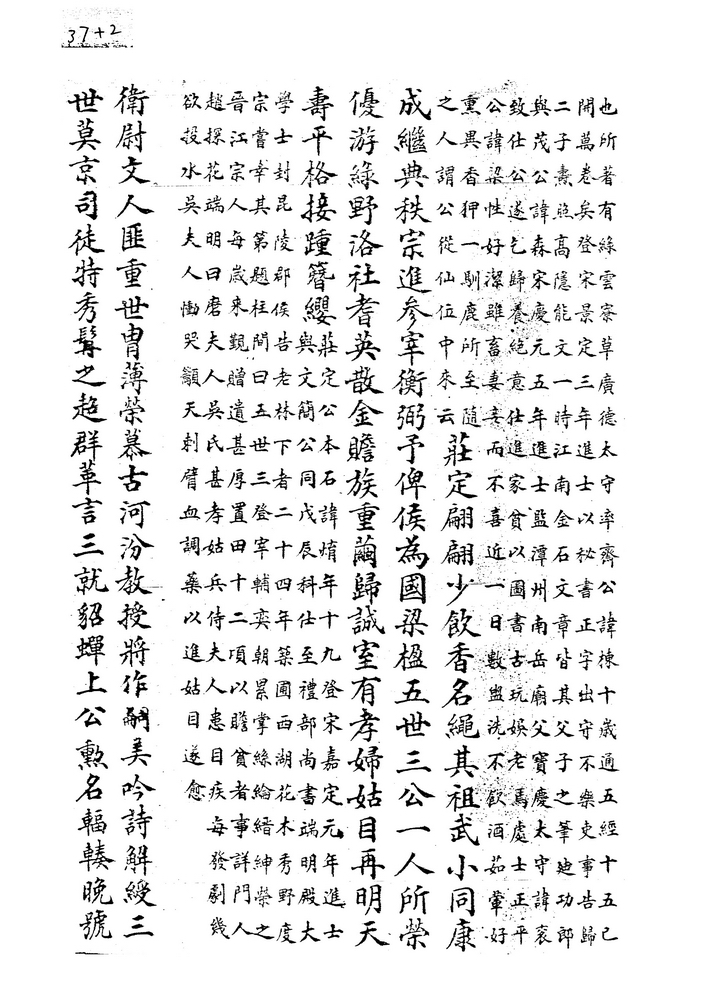 37+2
也所著有綠雲寮草廣德太守率齋公諱棟十歲通五經十五已
開萬卷矣登宋景定三年進士以秘書正字出守不樂吏事告歸
二子燾照高隱能文一時江南金石文章皆其父子之筆廸功郎
與茂公諱森宋慶元五年進士監潭州南岳廟父寶慶太守諱衮
致仕公遂乞歸養絕意仕進家貧以圖書古玩娛老馬處士正平
公諱梁性好潔雖畜妻妾而不喜近一日數盥洗不飲酒茹葷好
熏異香狎一馴鹿所至隨
之人謂公從仙伍中來云
莊定翩翩少飲香名繩其祖武小同康
成繼典秩宗進參宰衡弼予俾侯為國梁楹五世三公一人所榮
優游綠野洛社耆英散金贍族重繭歸誠室有孝婦姑目再明天
壽平格接踵簪纓
莊定公本石諱焴年十九登宋嘉定元年進士
與文簡公同戊辰科仕至禮部尚書端明殿大
學士封昆陵郡侯告老林下者二十四年築圃西湖花木秀野度
宗嘗幸其第題柱間曰五世三登宰輔奕朝累掌絲綸縉紳榮之
晉江宗人每歲來覲贈遺甚厚置田十二項以贍貧者事詳門人
趙探花端明曰磨夫人吳氏甚孝姑兵侍夫人患目疾每發劇幾
欲投水吳夫人慟哭籲天刺臂血調藥以進姑目遂愈
衛尉文人匪重世冑薄榮慕古河汾教授將作嗣美吟詩解綬三
世莫京司徒特秀髯之超群革言三就貂蟬上公勲名輻輳晚號